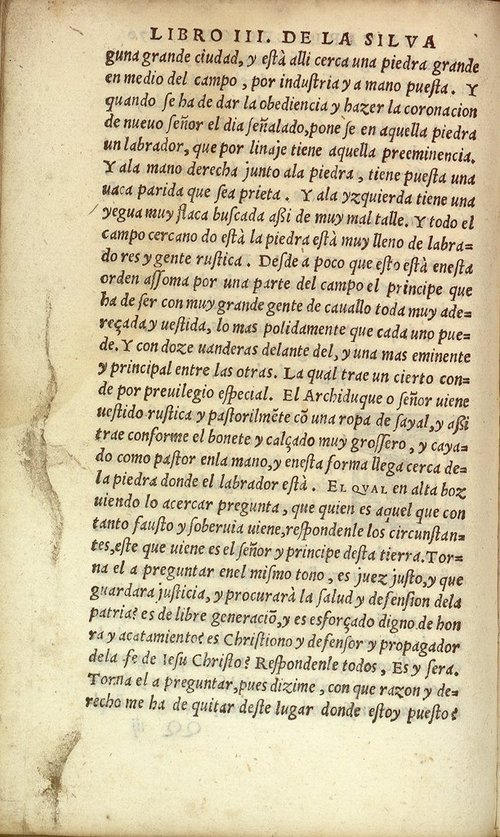 LIBRO III. DE LA SILVA
guna grande ciudad, y està alli cerca una piedra grande
en medio del campo, por industria y a mano puesta. Y
quando se ha de dar la obediencia y hazer la coronacion
de nueuo señor el dia señalado, pone se en aquella piedra
un labrador, que por linaje tiene aquella preeminencia.
Y ala mano derecha junto ala piedra, tiene puesta una
uaca parida que sea prieta. Y ala yzquierda tiene una
yegua muy flaca buscada aßi de muy mal talle. Y todo el
campo cercano do està la piedra està muy lleno de labra-
dores y gente rustica. Desde a poco que esto està enesta
orden assoma por una parte del campo el principe que
ha de ser con muy grande gente de cauallo toda muy ade-
reçada y uestida, lo mas polidamente que cada uno pue-
de. Y con doze uanderas delante del, y una mas eminente
y principal entre las otras. La qual trae un cierto con-
de por preuilegio especial. El Archiduque o señor uiene
uestido rustica y pastorilmẽte cõ una ropa de sayal, y aßi
trae conforme el bonete y calçado muy grossero, y caya-
do como pastor enla mano, y enesta forma llega cerca de-
la piedra donde el labrador està. EL QVAL en alta boz
uiendo lo acercar pregunta, que quien es aquel que con
tanto fausto y soberuia uiene, respondenle los circunstan-
tes, este que uiene es el señor y principe desta tierra. Tor-
na el a preguntar enel mismo tono, es juez justo, y que
guardara justicia, y procurarà la salud y defension dela
patria? es de libre generaciõ, y es esforçado digno de hon
ra y acatamiento? es Christiono y defensor y propagador
dela fe de Iesu Christo? Respondenle todos, Es y sera.
Torna el a preguntar, pues dizime, con que razon y de-
recho me ha de quitar deste lugar donde estoy puesto?